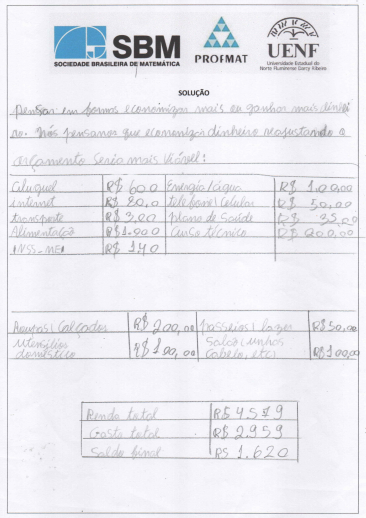 SBM
SOCIEDADE BRASILEIRA DE MATEMÁTICA
PROFMAT
UENF
Universidade Estadual do
Norte Fluminense Darcy Ribeiro
SOLUÇÃO
pensar em formas economizar mais ou ganhar mais dinhei
ro. Nós pensamos que economizar dinheiro reajustando o
orçamento seria mais viável:
Aluguel R$ 600 Energia/água R$ 100,00
internet R$ 80,0 telefone/celular R$ 50,00
transporte R$ 3,00 plano de Saúde R$ 35,00
Alimentação R$ 1.000 Curso técnico R$ 200,00
INSS-MEI R$ 140
Roupas/Calçados R$ 200,00 passeios/lazer R$ 50,00
Utensílios R$ 100,00 Salão (unhas
doméstico cabelo, etc) R$ 100,00
Renda total R$ 4579
Gasto total R$ 2.959
Saldo final R$ 1.620